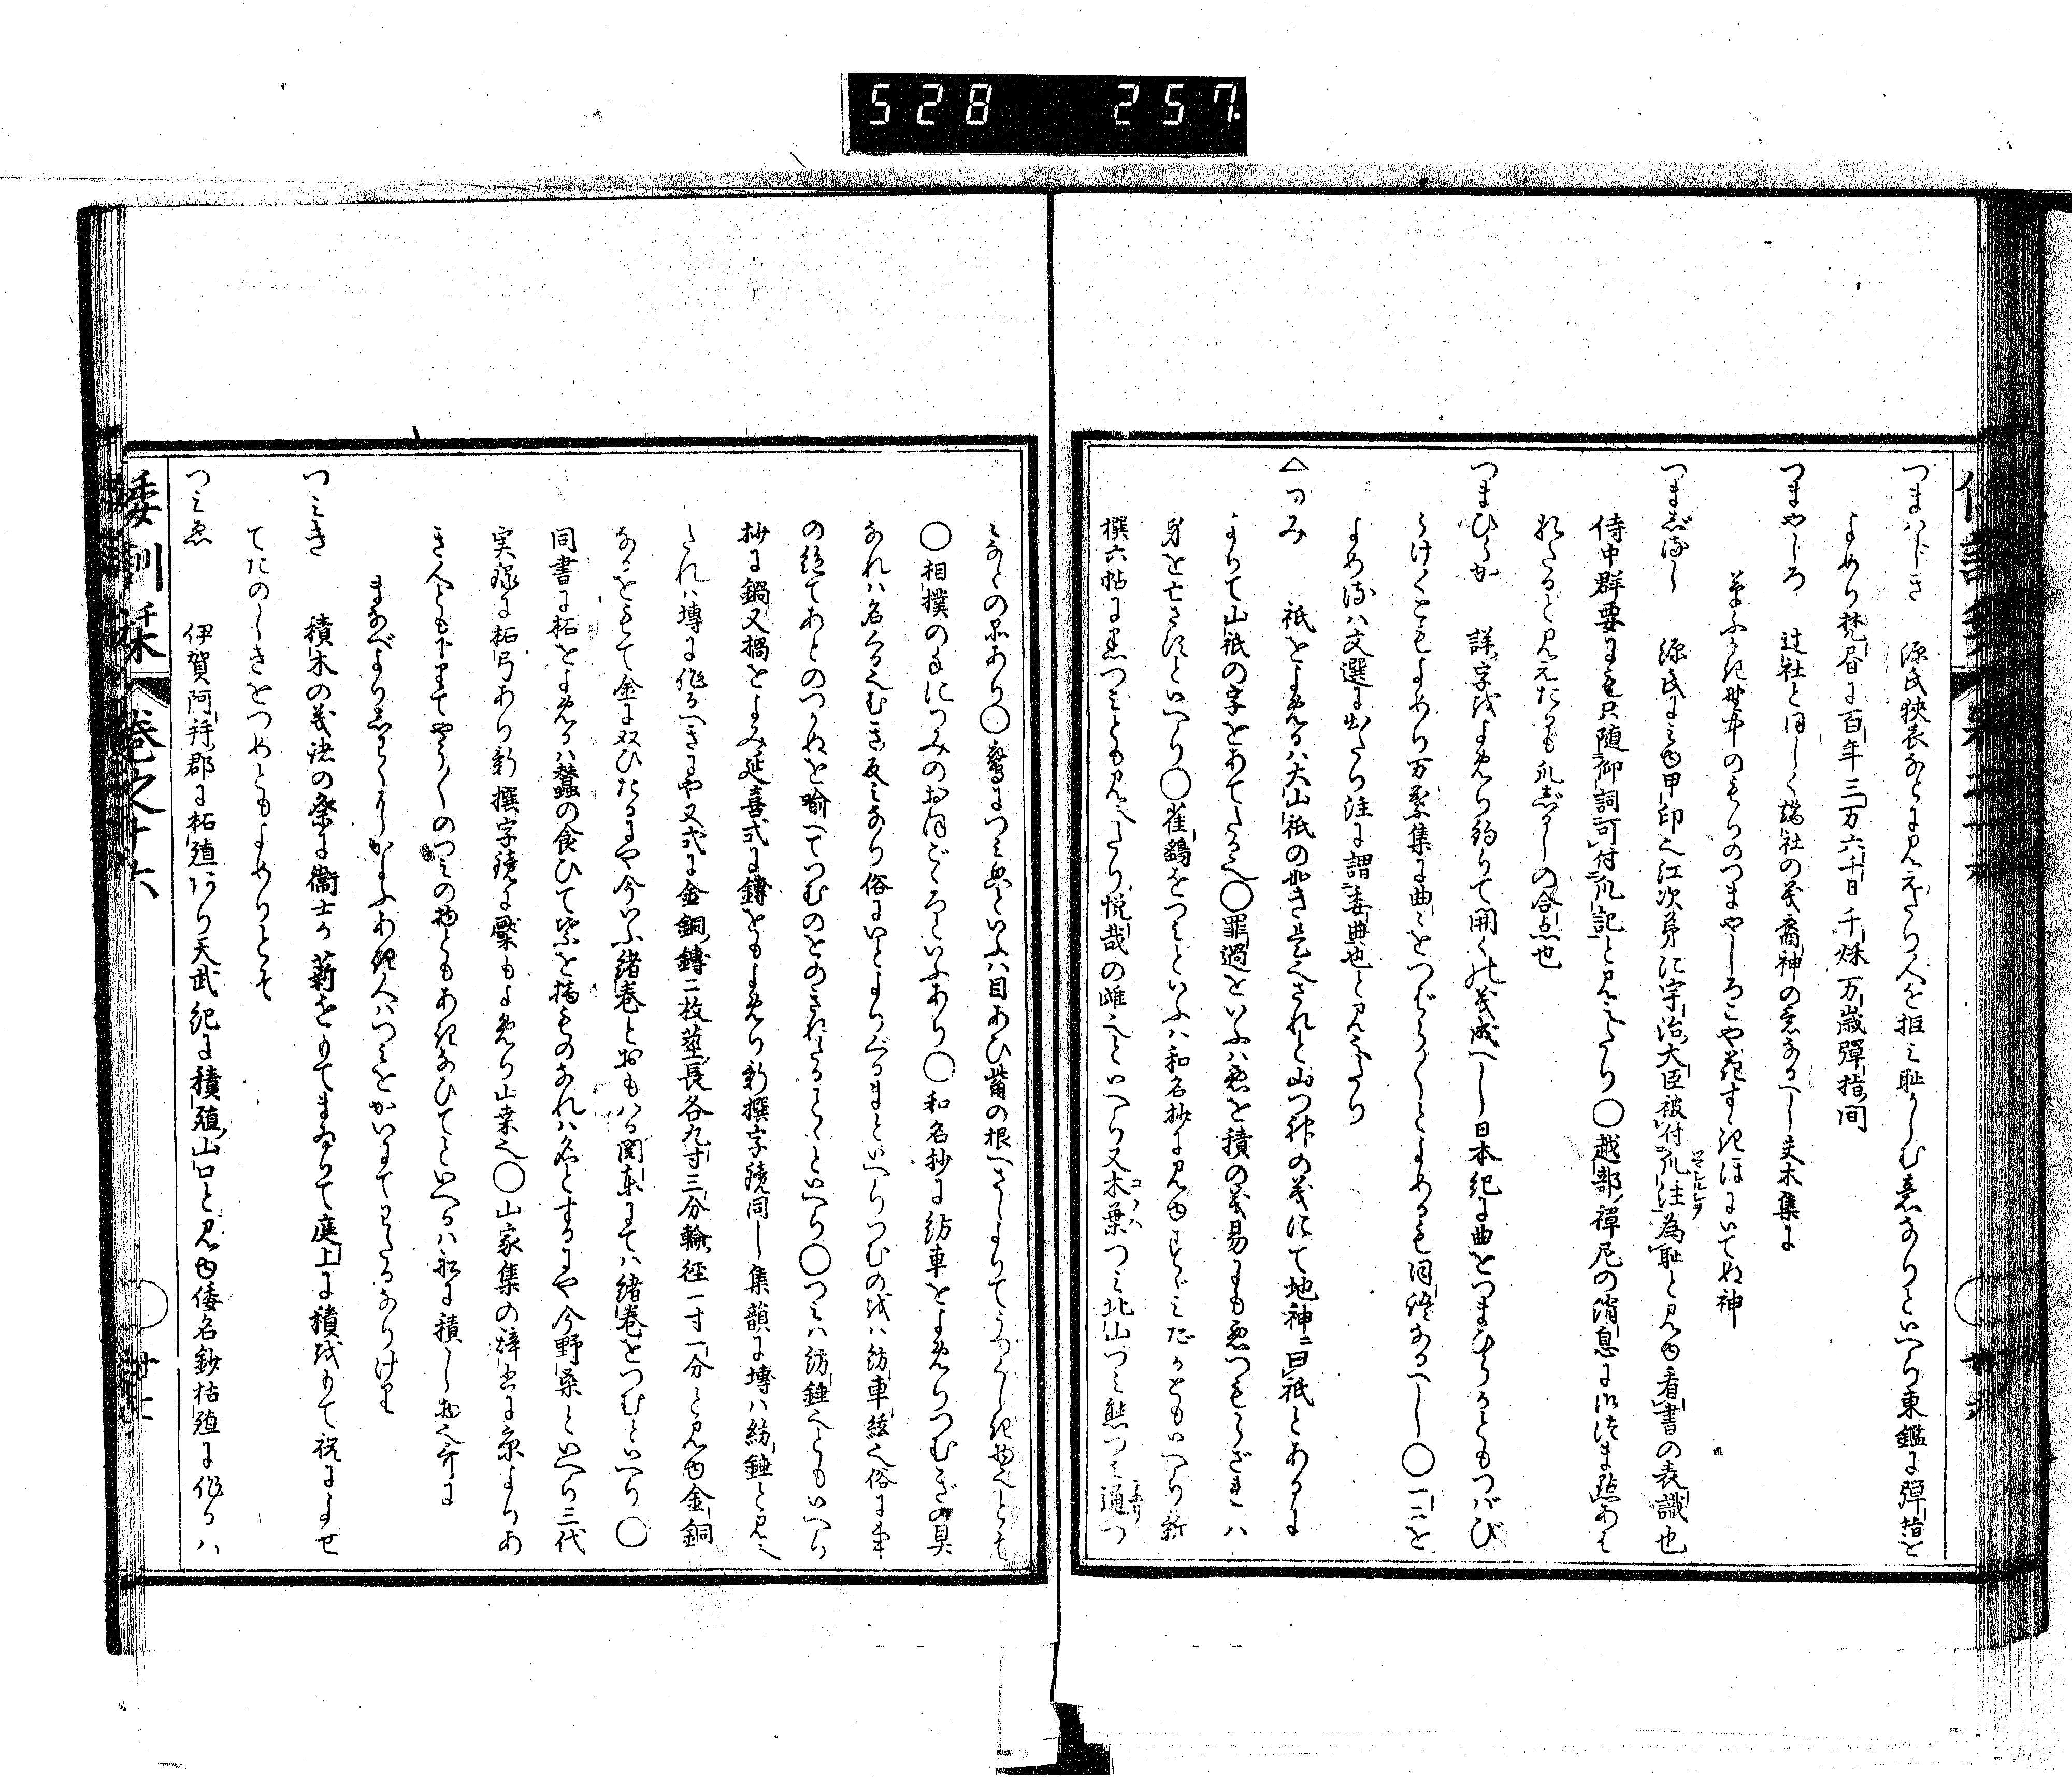 528 257
つまはじき 源氏狭衣などに見えたり人を拒み恥かしむ意なりといへり東鑑に弾指を
よめり梵暦に百年三万六千日千秋万歳弾指間
つまやしろ 辻社と同しく端社の義裔神の意なるへし夫木集に
草ふかき野中のもりのつまやしろこや花すゝきほにいてぬ神
つまじるし 源氏にみゆ甲印也江次第に宇治大臣被付爪注為恥と見ゆ看書の表識也
侍中群要にも只随仰詞可付爪記と見えたり〇越部禅尼の消息に御つま点あひ
れたると見えたるも爪じるしの合点也
つまひらか 詳字をよめり約りて開くの義成へし日本紀に曲をつまひらかともつばび
らけくともよめり万葉集に曲々をつばら〱とよめるも同語なるへし〇一二を
よめるは文選に出たり注に謂委典也と見えたり
△つみ 祇をよめるは大山祇の如き是也されと山つ神の義にて地神曰祇とあるに
よりて山祇の字をあてたる也〇罪過をいふは悪を積の義易にも悪つもらざれは
身を亡さずといへり〇雀鷂をつみといふは和名抄に見ゆすゞみだかともいへり新
撰六帖に黒つみとも見えたり悦哉の雌也といへり又木葉つみ北山つみ熊つみ通つ
みなとの品あり〇鷲につみ毛といふは目あひ觜の根へさしよりてうつくしき物也とそ
〇相撲の手につみのおほごろといふあり〇和名抄に紡車をよめりつむぎの具
なれは名くる也むき反みなり俗にいとよりぐるまといへりつむのをは紡車絃也俗に車
の絃てあとのつかぬを喩へてつむのをのきれたることくといへり〇つみは紡錘也ともいへり
抄に鍋又楇をよみ延喜式に鏄をもよめり新撰字鏡同し集韻に塼は紡錘と見え
たれは塼に作るへきにや又式に金銅鏄二枚茎長各九寸三分輪径一寸一分と見ゆ金銅
なるをもて金に双ひたるにや今いふ緒巻とおもはる関東にては緒巻をつむといへり〇
同書に柘をよめるは蚕の食ひて紫を摘ものなれは名とするにや今野桑といへり三代
実録に柘弓あり新撰字鏡に檿もよめり山桑也〇山家集の辞書に京よりあ
き人とも下りてやう〱のつみの物ともあきなひてといへるは船に積し物也哥に
まなべよりしわくへかよふあき人はつみをかいにてわたるなりけり
つみき 積木の義諸の祭に衛士か薪をもてまゐりて庭上に積をもて祝によせ
てたのしきをつめともよめりとそ
つみゑ 伊賀阿拝郡に柘殖あり天武紀に積殖山口と見ゆ倭名鈔柘殖に作りハ
倭訓栞 巻之十六